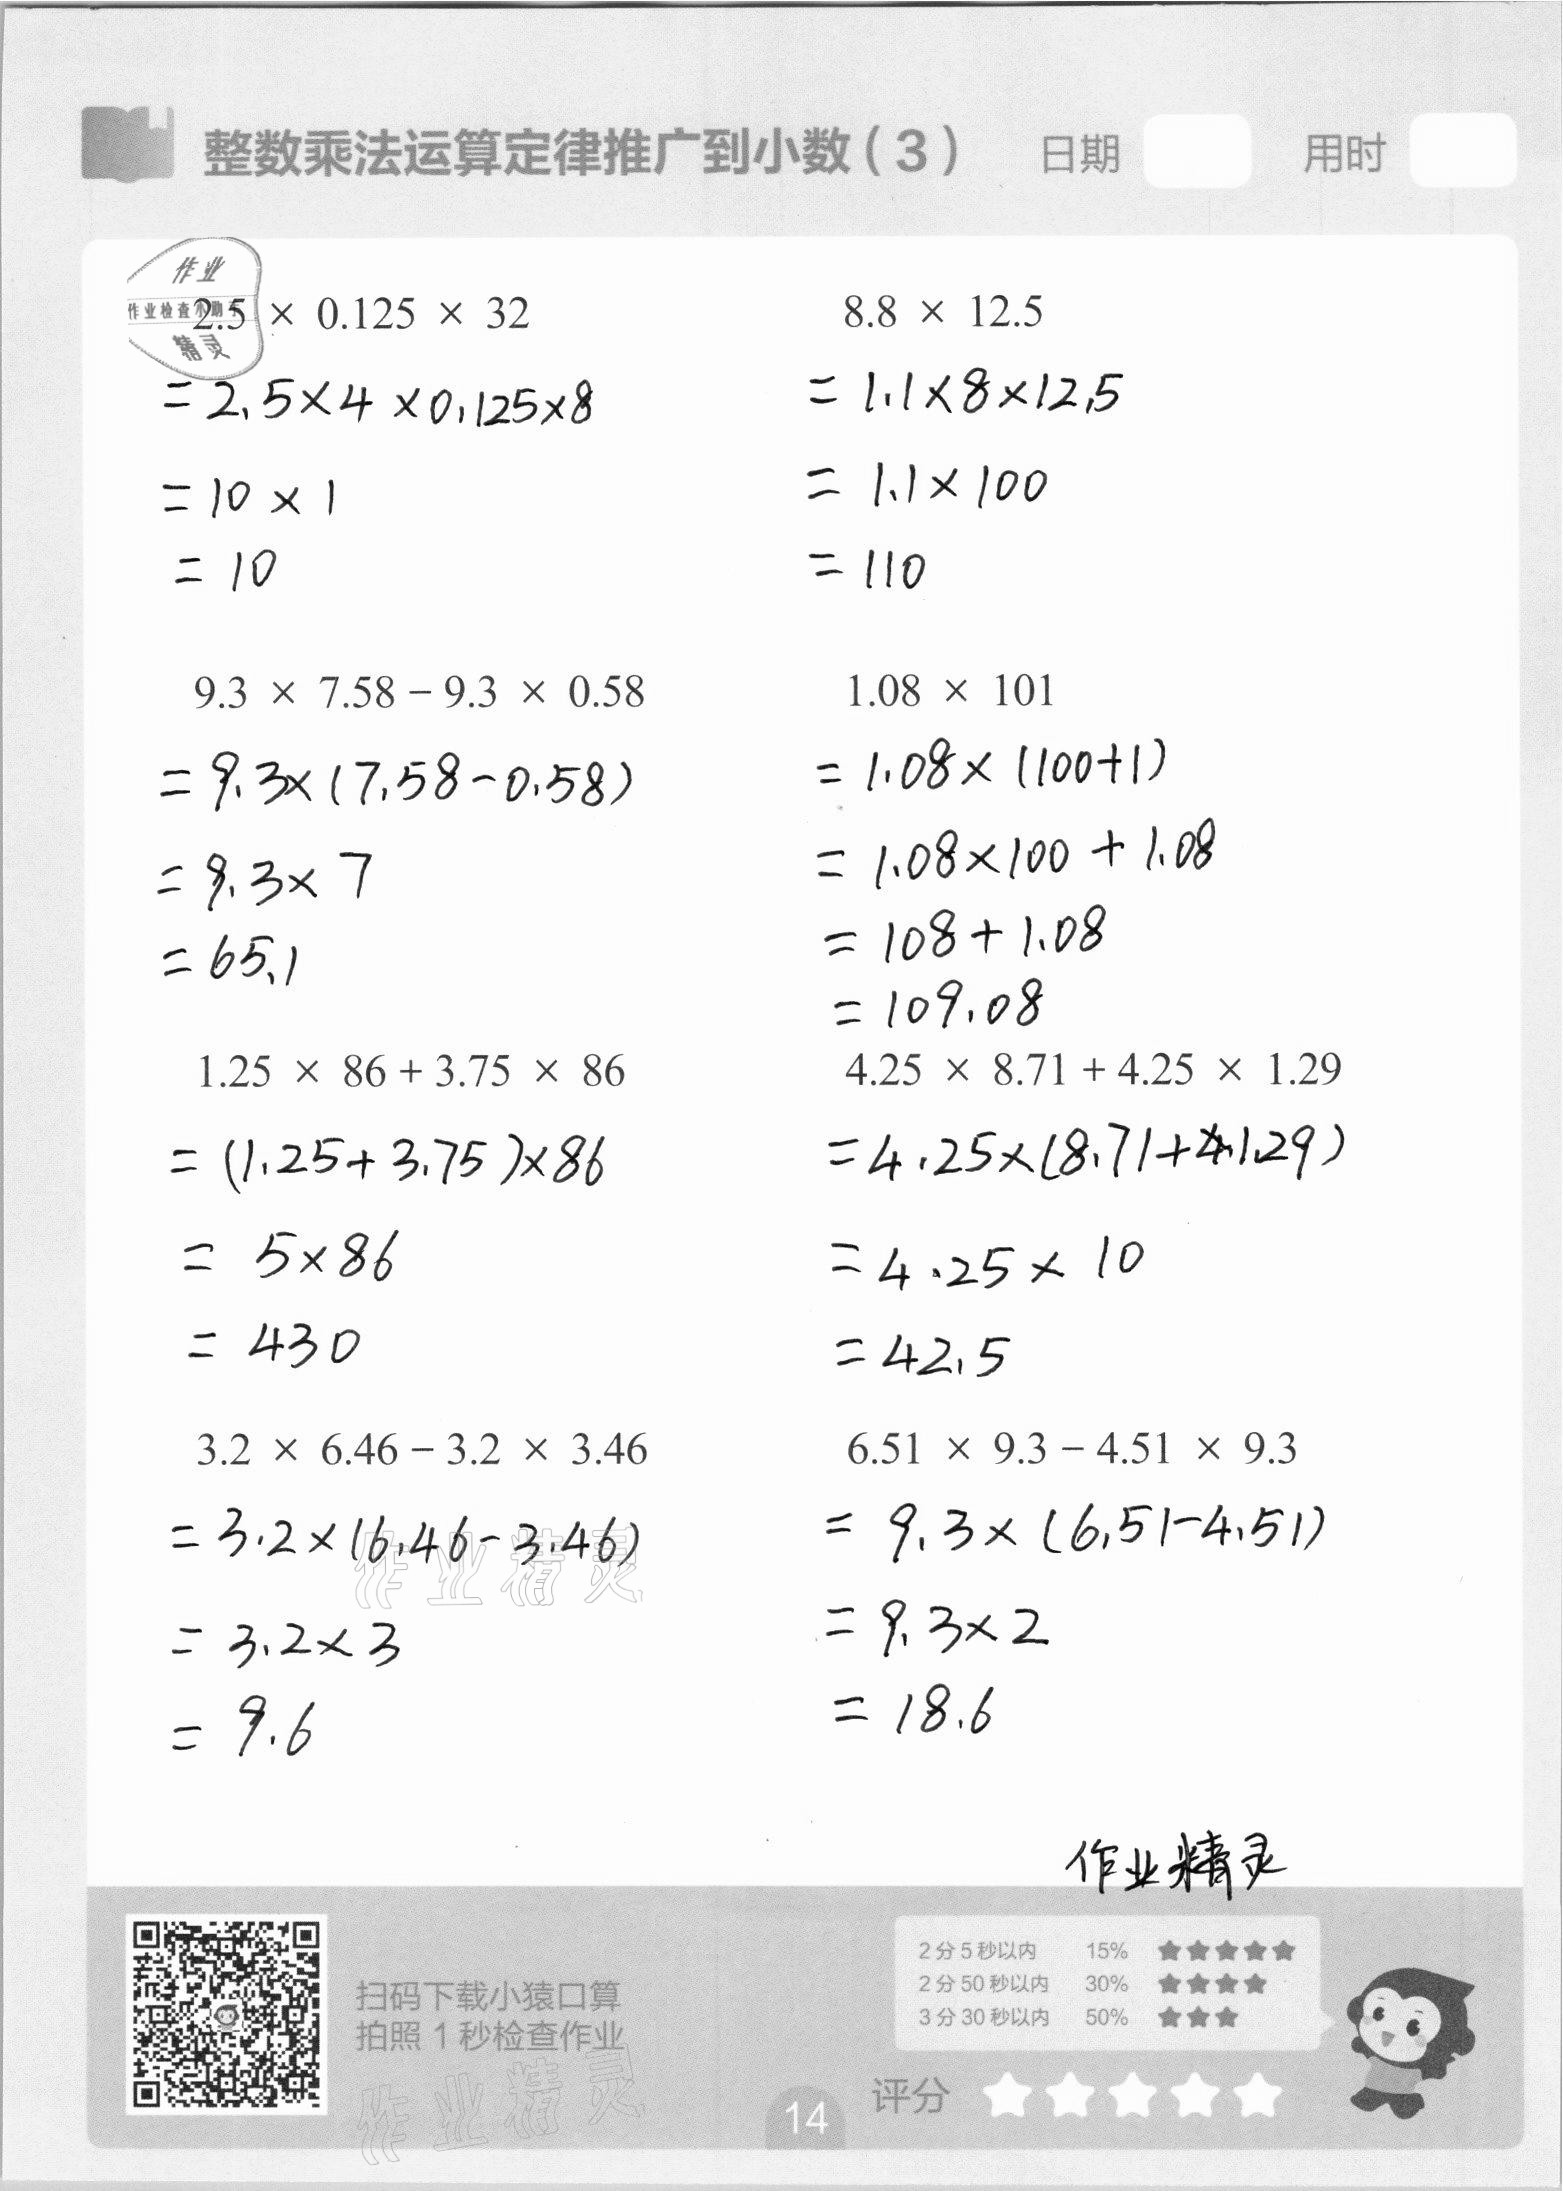 整数乘法运算定律推广到小数(3) 日期 用时
作业
作业检查小助手
精灵
2.5 × 0.125 × 32
=2.5×4×0.125×8
=10×1
=10
8.8 × 12.5
=1.1×8×12.5
=1.1×100
=110
9.3 × 7.58-9.3 × 0.58
=9.3×(7.58-0.58)
=9.3×7
=65.1
1.08 × 101
=1.08×(100+1)
=1.08×100+1.08
=108+1.08
=109.08
1.25 × 86+3.75 × 86
=(1.25+3.75)×86
=5×86
=430
4.25 × 8.71+4.25 × 1.29
=4.25×(8.71+1.29)
=4.25×10
=42.5
3.2 × 6.46-3.2 × 3.46
=3.2×(6.46-3.46)
=3.2×3
=9.6
作业精灵
6.51 × 9.3-4.51 × 9.3
=9.3×(6.51-4.51)
=9.3×2
=18.6
作业精灵
扫码下载小猿口算
拍照1秒检查作业
作业精灵
2分5秒以内 15% ★★★★★
2分50秒以内 30% ★★★★
3分30秒以内 50% ★★★
评分 ★★★★★
14